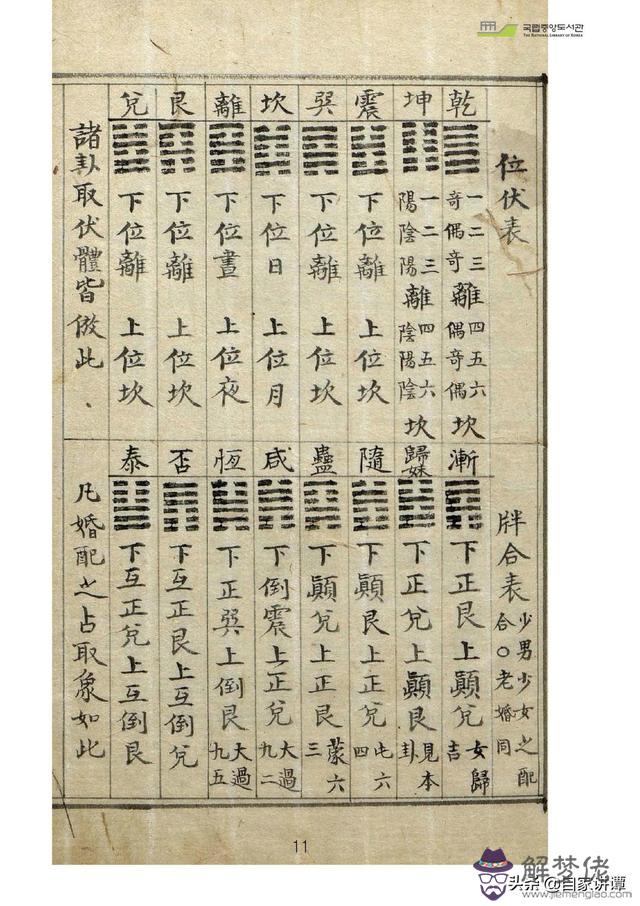 국립중앙도서관
THE NATIONAL LIBRARY OF KOREA
位伏表
乾
一二三 四五六
奇偶奇離偶奇偶坎
坤
一二三 四五六
陽陰陽離陰陽陰坎
震
下位離 上位坎
巽
下位離 上位坎
坎
下位日 上位月
離
下位晝 上位夜
艮
下位離 上位坎
兌
下位離 上位坎
諸卦取伏體皆倣此
牉合表 少男少女之配
合○老婚同
漸
下正艮上顚兌 女歸
吉
歸妹
下正兌上顚艮 見本
卦
隨
下顚艮上正兌 屯六
四
蠱
下顚兌上正艮 蒙六
三
咸
下倒震上正兌 大過
九二
恆
下正巽上倒艮 大過
九五
否
下互正艮上互倒兌
泰
下互正兌上互倒艮
凡婚配之占取象如此
11
解梦佬
www.jiemenglao.com
头条 @自家讲谭